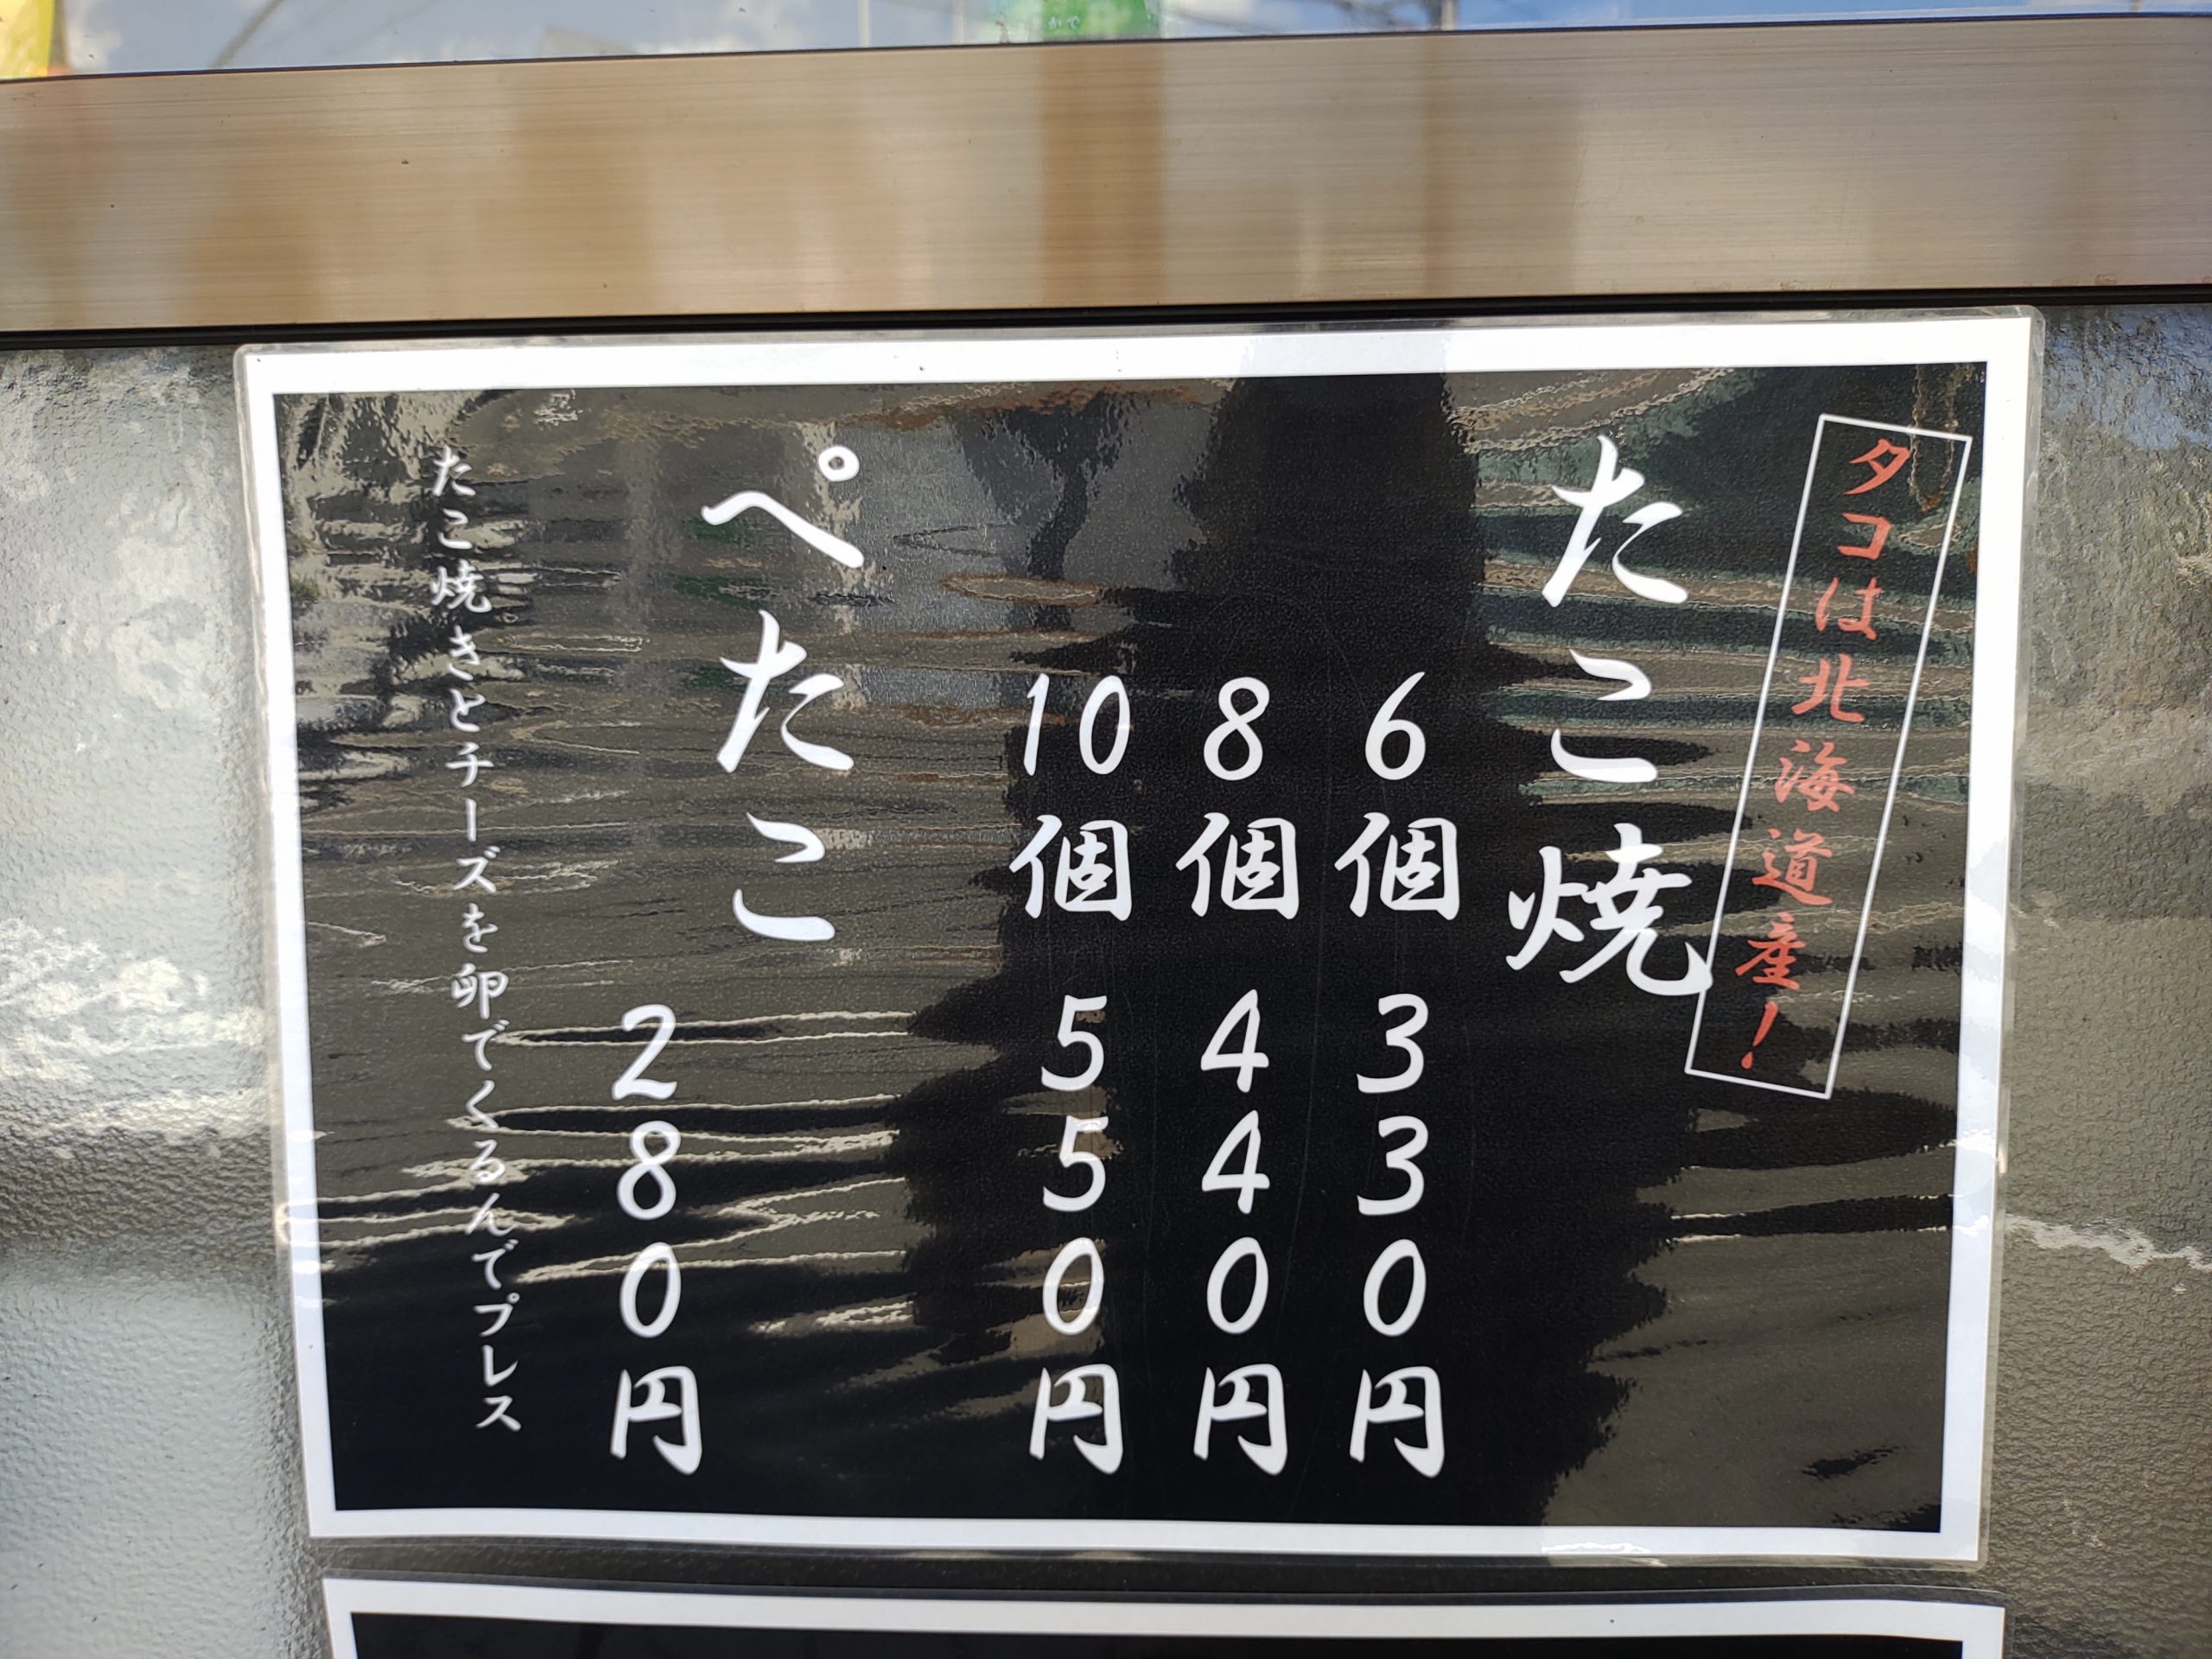 タコは北海道産!
たこ焼
6個 330円
8個 440円
10個 550円
ぺたこ
280円
たこ焼きとチーズを卵でくるんでプレス